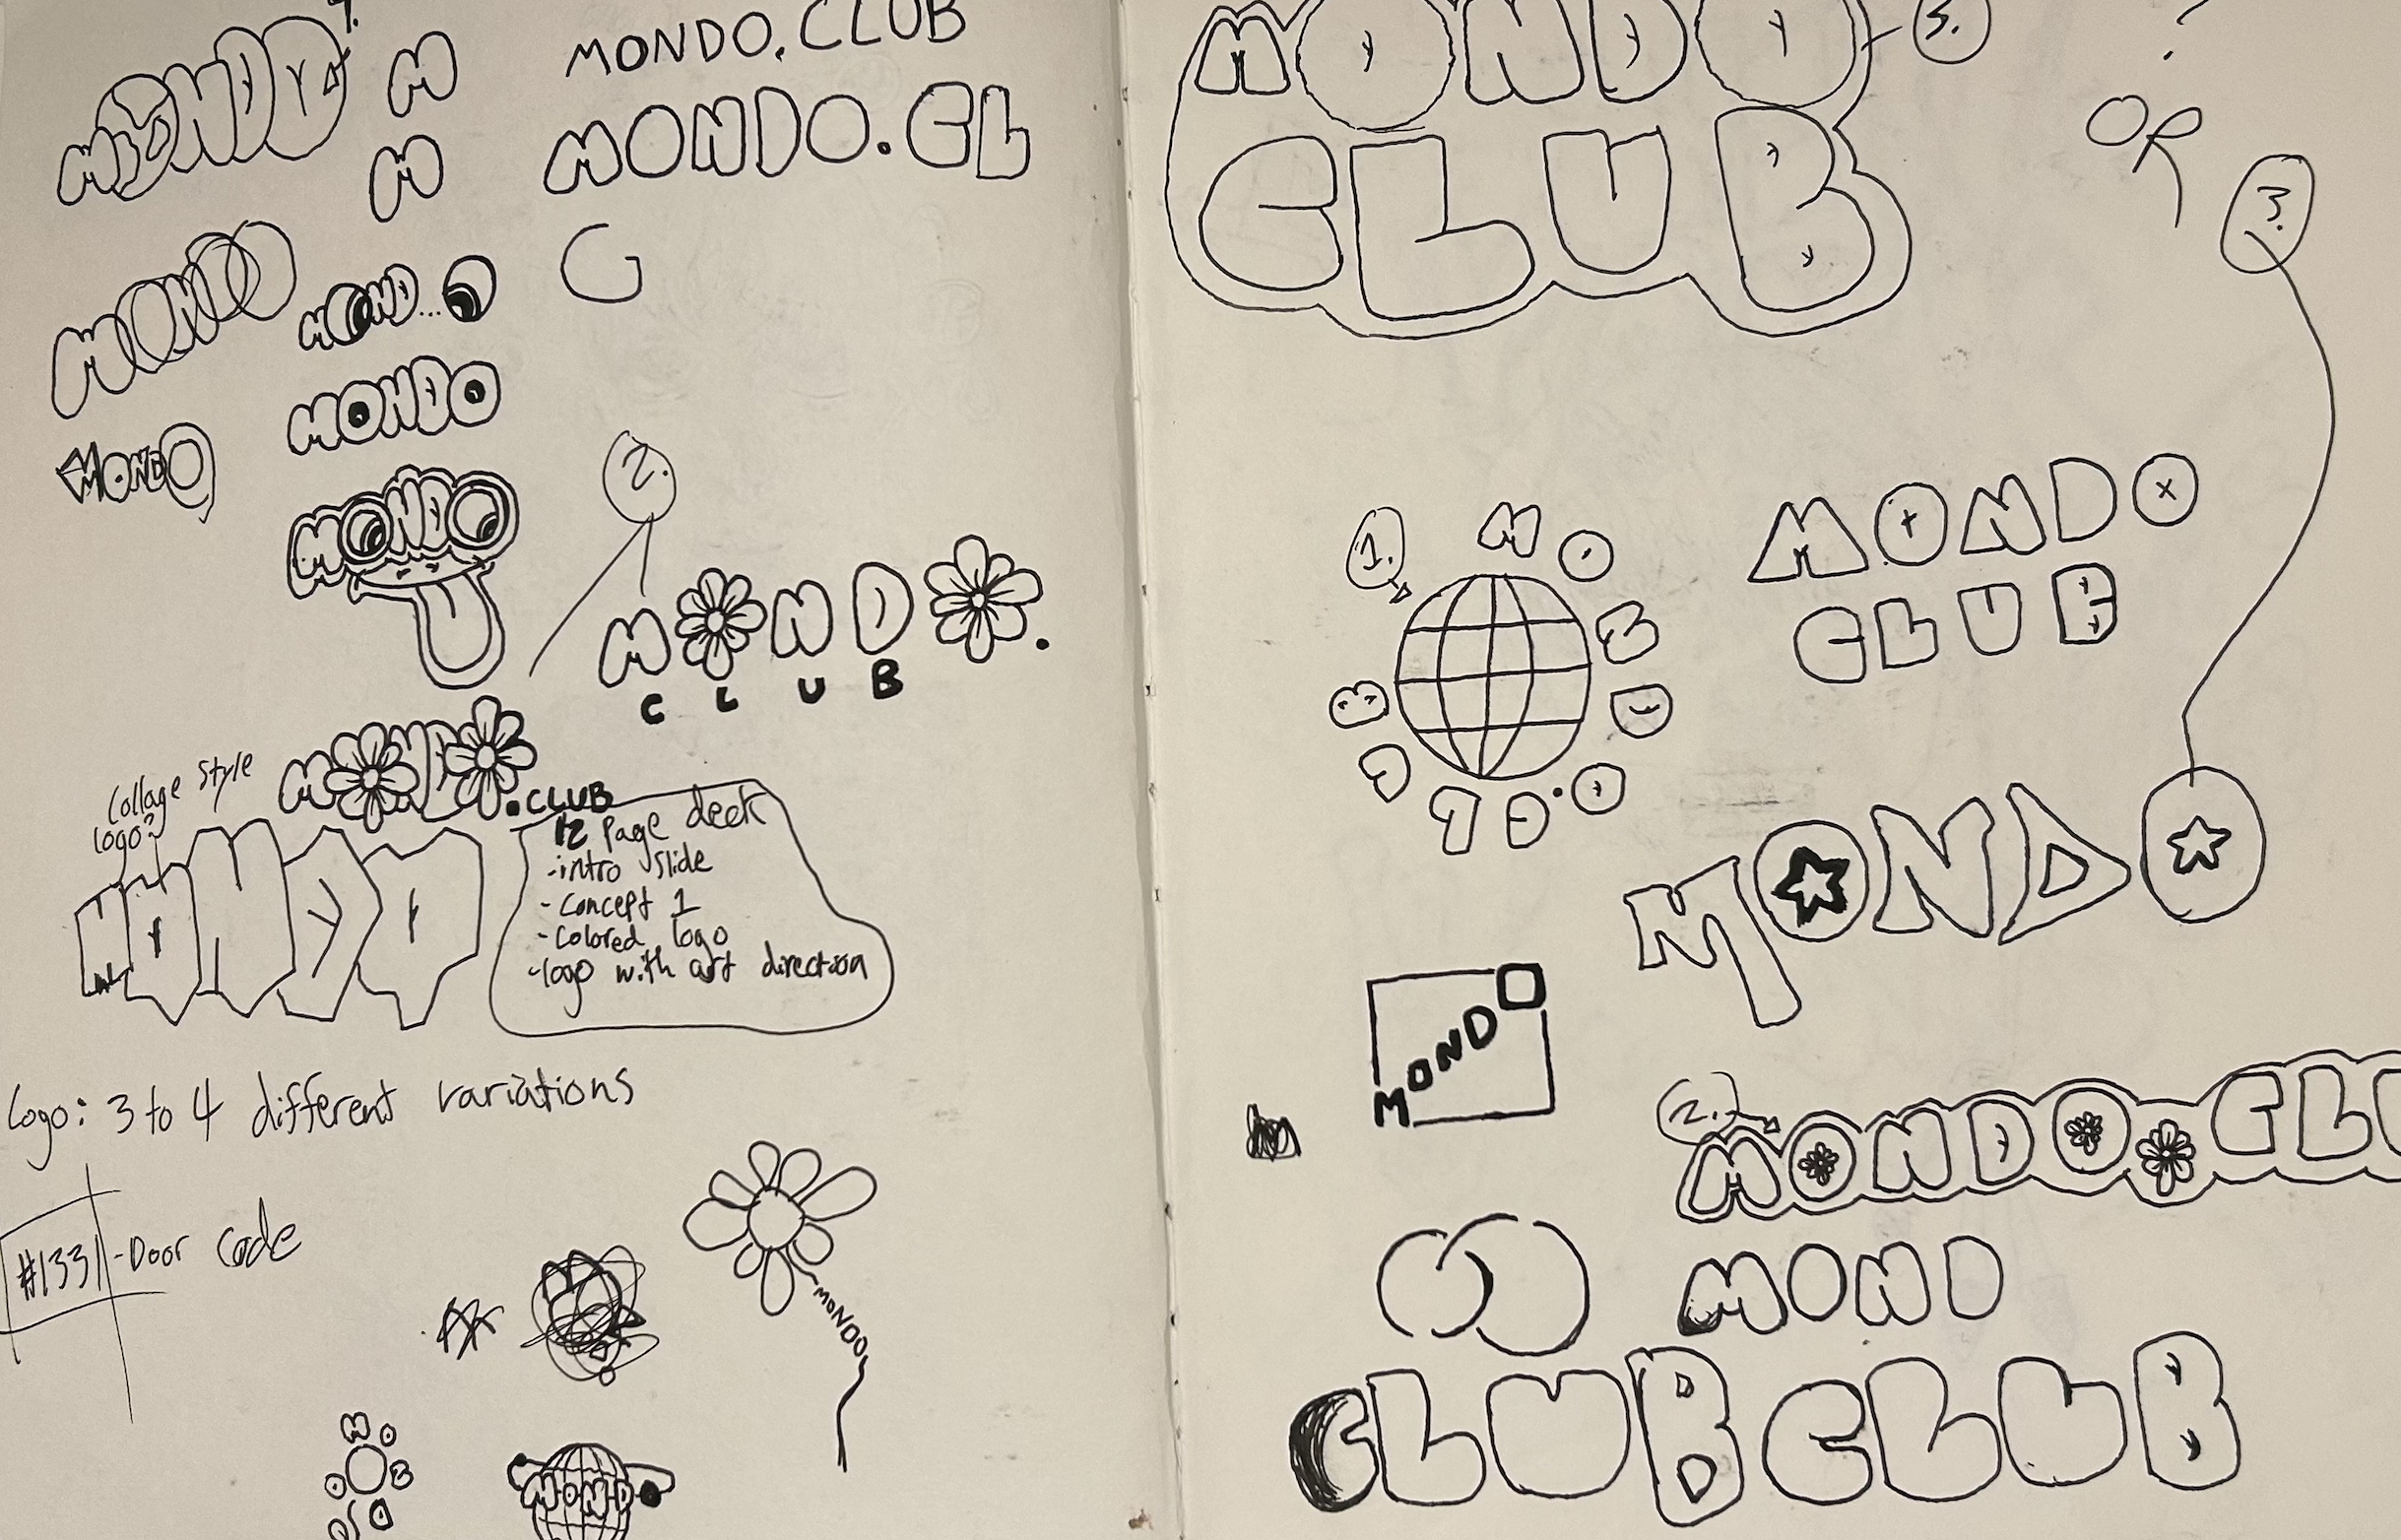 MONDO
M
M
MONDO
MOND...O
MONDO
MONDO
MONDO
MONDO.CLUB
MONDO.CL
C
2.
MONDO.
CLUB
MONDO
.CLUB
Collage Style
logo?
MONDO
12 Page deck
-intro slide
-Concept 1
-Colored logo
-logo with art direction
Logo: 3 to 4 different variations
#1331-Door Code
MONDO
MOND
MONDO
CLUB
3.
?
OR
3.
1.
MONDO.CLUB
MONDO
CLUB
MONDO
MONDO
2.
MONDO.CLU
MOND
CLUB CLUB